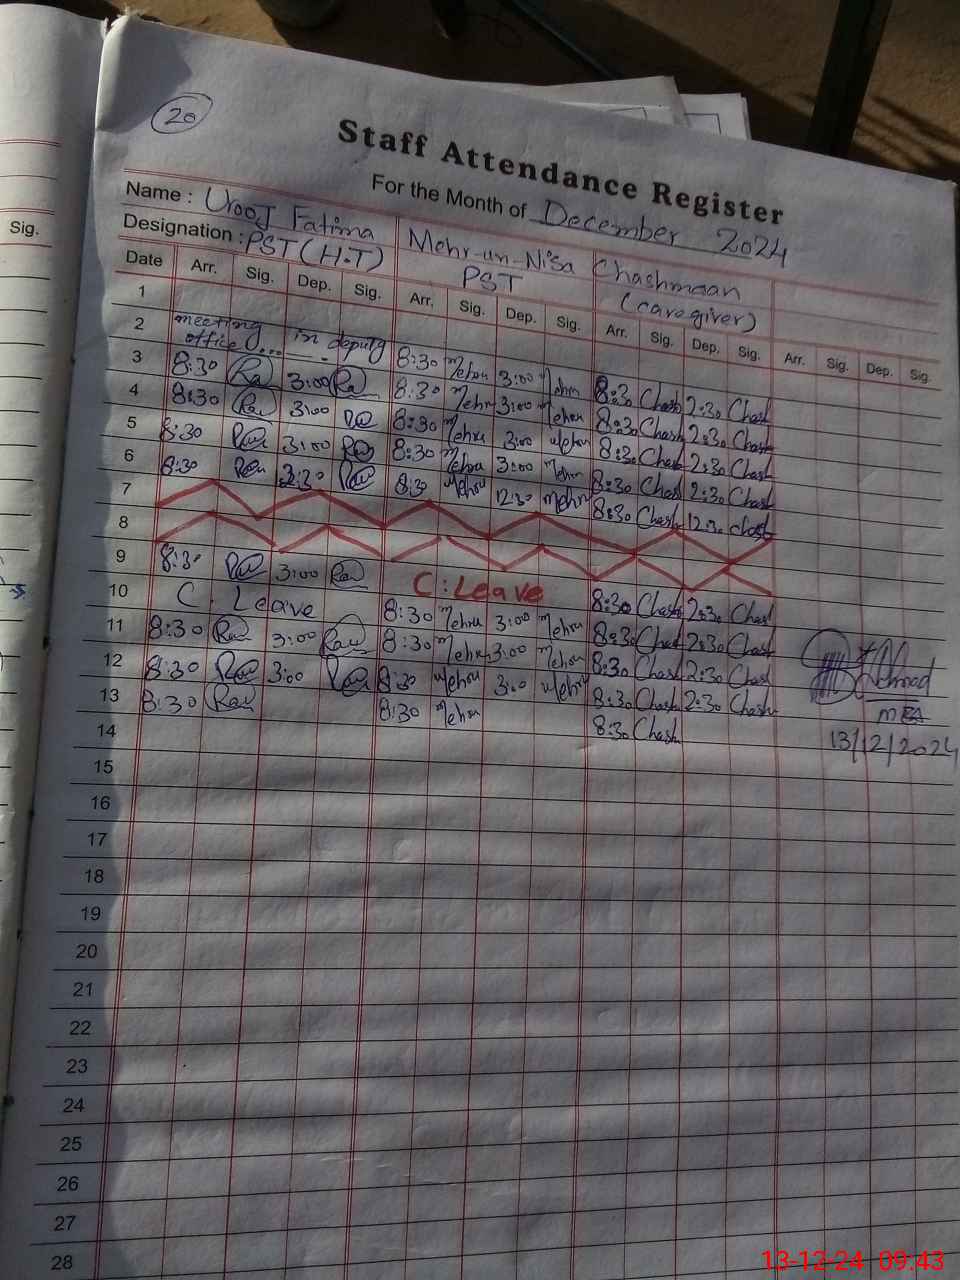 20
Staff Attendance Register
For the Month of December 2024
Sig.
Name : Urooj Fatima Mehr-un-Nisa Chashmaan
Designation : PST (H.T) PST (caregiver)
Date Arr. Sig. Dep. Sig. Arr. Sig. Dep. Sig. Arr. Sig. Dep. Sig. Arr. Sig. Dep. Sig.
1
2 meeting in deputy office 8:30 Mehru 3:00 Mehru 8:30 Chash 2:30 Chash
3 8:30 3:00 8:30 Mehru 3:00 Mehru 8:30 Chash 2:30 Chash
4 8:30 3:00 8:30 Mehru 3:00 Mehru 8:30 Chash 2:30 Chash
5 8:30 3:00 8:30 Mehru 3:00 Mehru 8:30 Chash 2:30 Chash
6 8:30 8:30 Mehru 12:30 Mehru 8:30 Chash 12:30 Chash
7
8
9 8:30 3:00 C:Leave 8:30 Chash 2:30 Chash
10 C. Leave 8:30 Mehru 3:00 Mehru 8:30 Chash 2:30 Chash
11 8:30 3:00 8:30 Mehru 3:00 Mehru 8:30 Chash 2:30 Chash
12 8:30 3:00 8:30 Mehru 3:00 Mehru 8:30 Chash 2:30 Chash
13 8:30 8:30 Mehru 8:30 Chash
Ahmad
MEA
13/12/2024
14
15
16
17
18
19
20
21
22
23
24
25
26
27
28
13-12-24 09:43